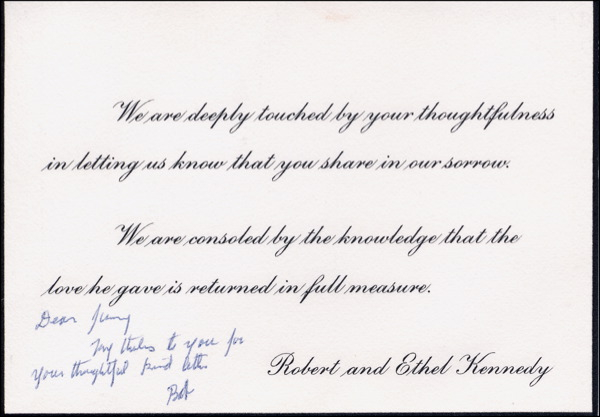 We are deeply touched by your thoughtfulness
in letting us know that you share in our sorrow.
We are consoled by the knowledge that the
love he gave is returned in full measure.
Dear
My thanks to you for
your thoughtful kind letter
Bob
Robert and Ethel Kennedy